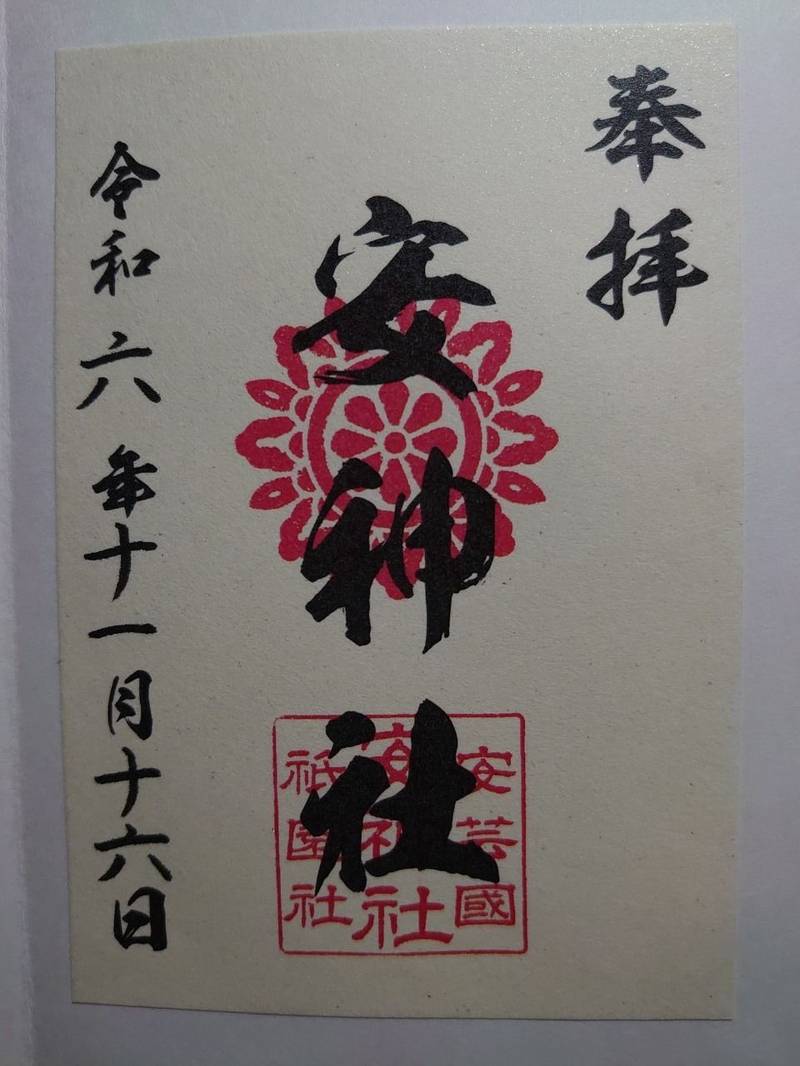 奉拝
安神社
安芸國
安神社
祇園社
令和六年十一月十六日